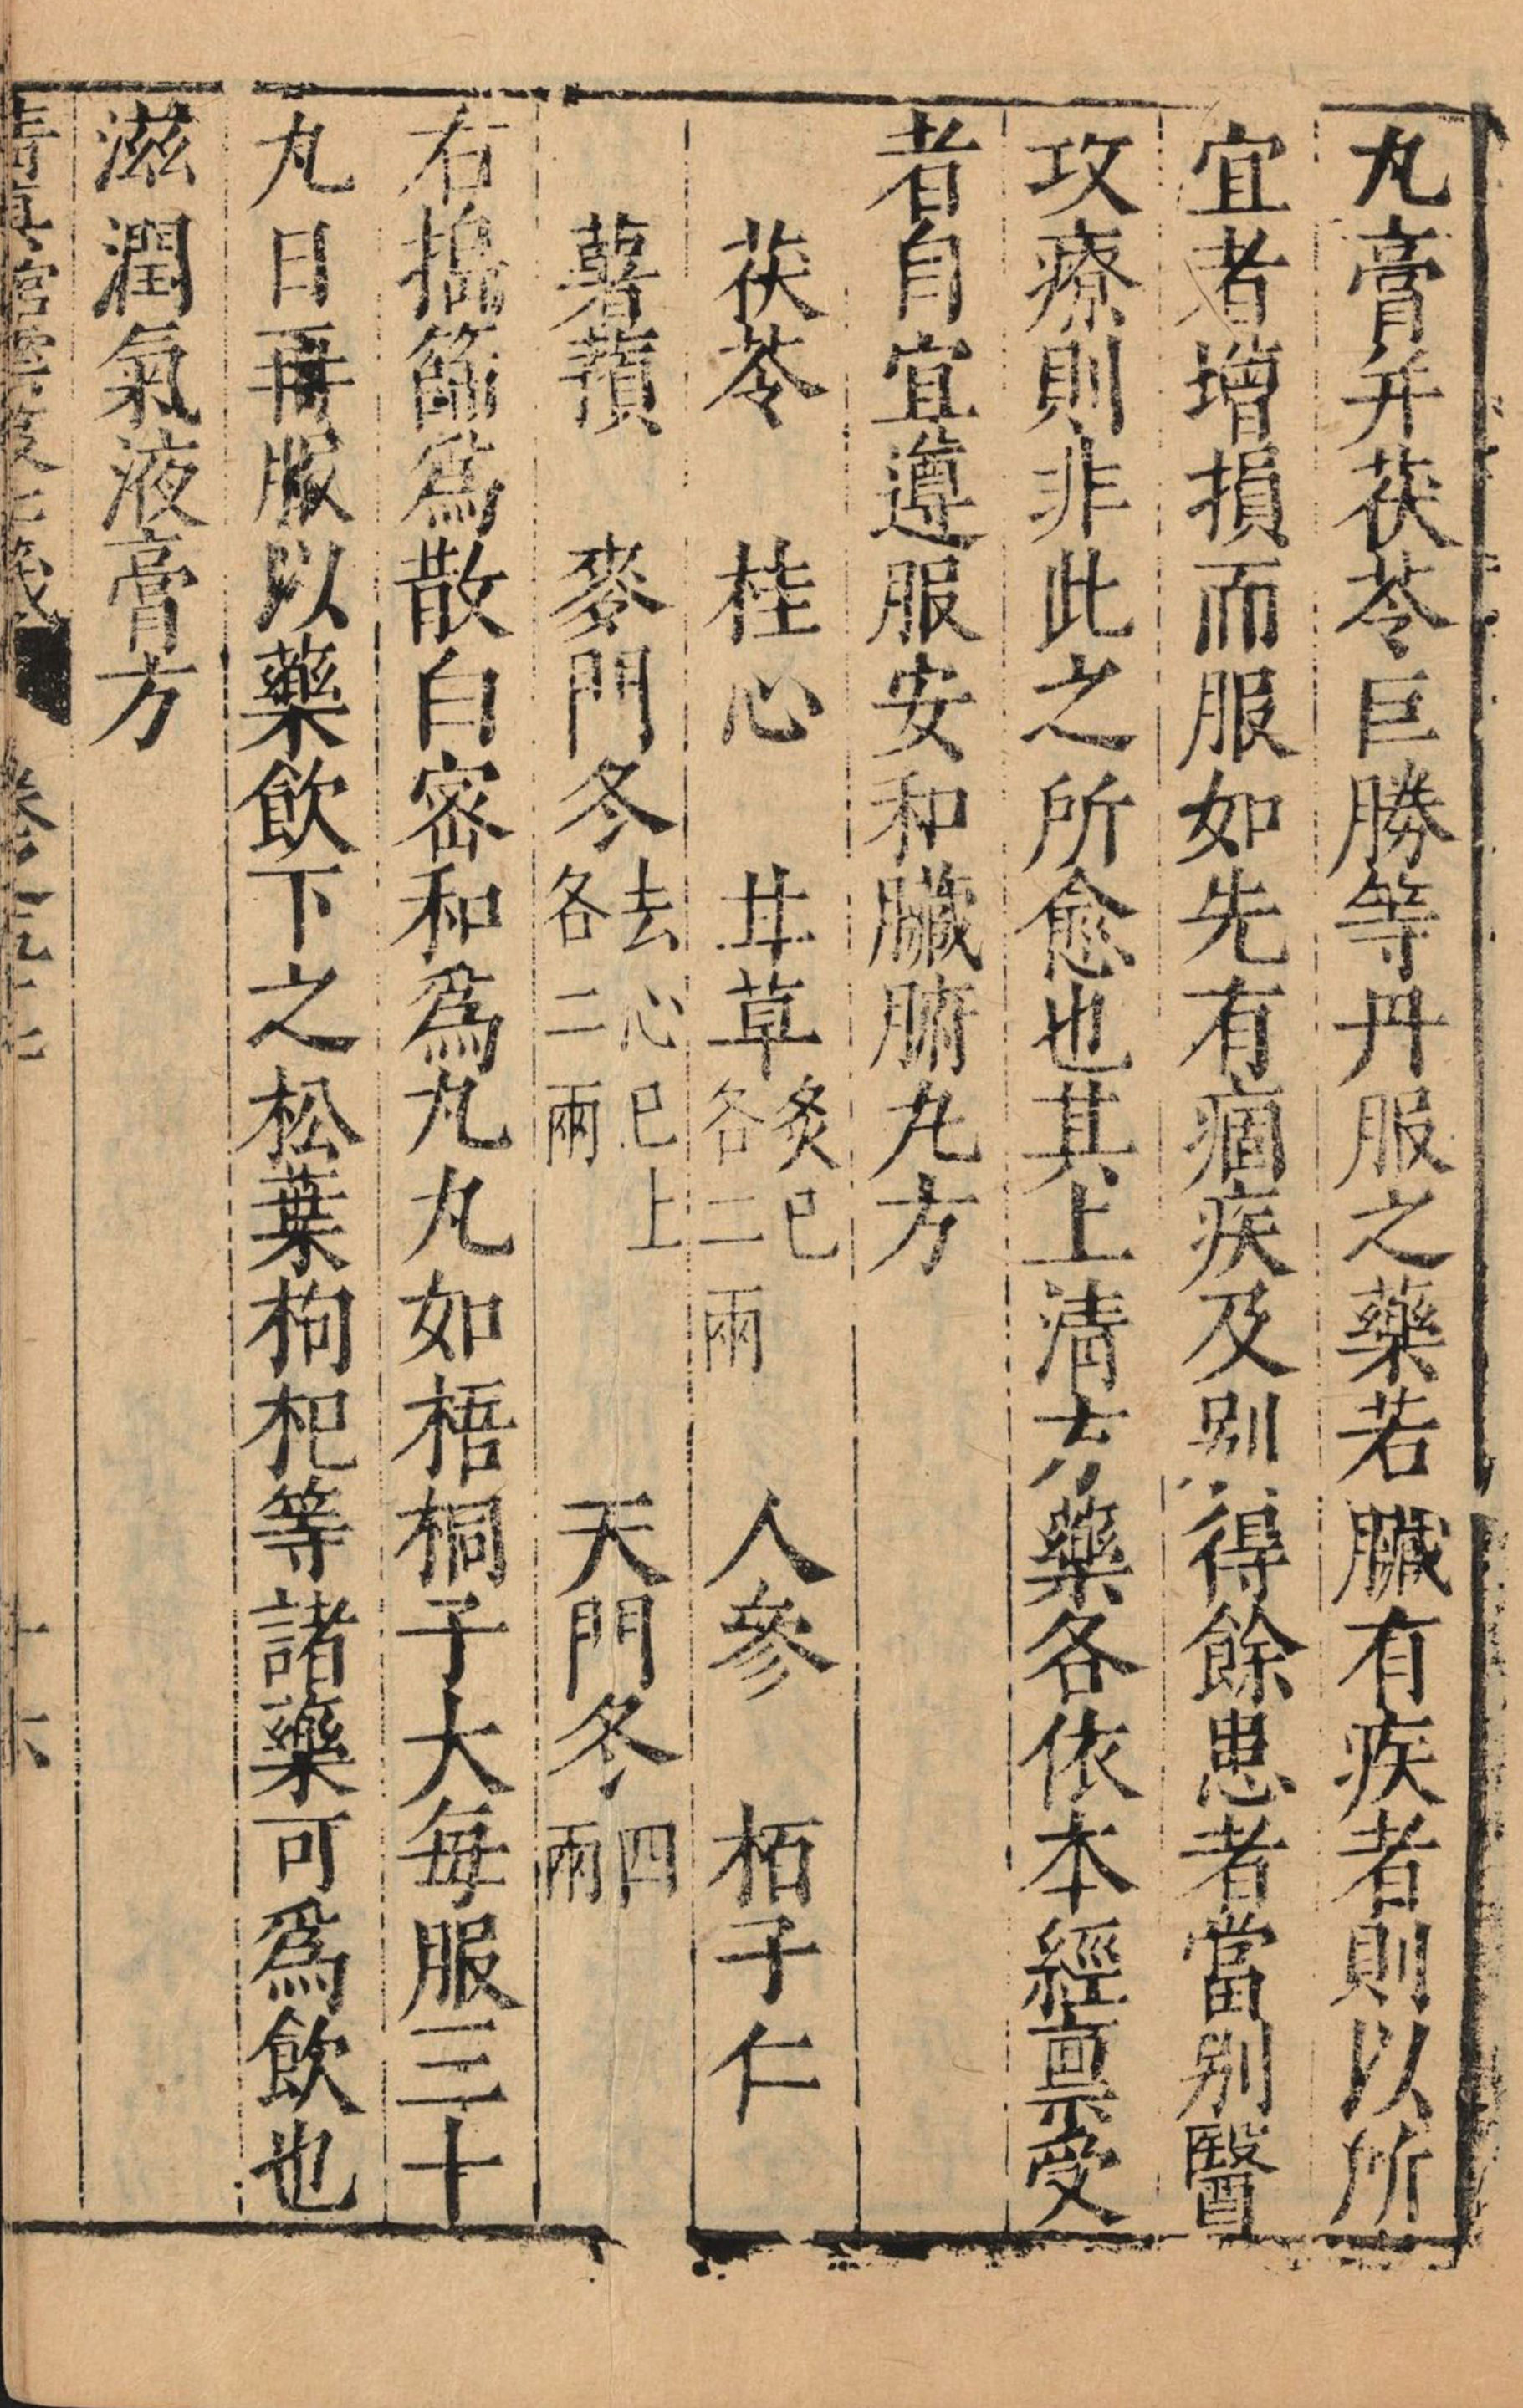 丸膏幷茯苓巨勝等丹服之藥若臟有疾者則以所
宜者增損而服如先有痼疾及别得餘患者當别醫
攻療則非此之所愈也其上清方藥各依本經禀受
者自宜遵服安和臟腑丸方
茯苓 桂心 甘草炙已各二兩 人參 栢子仁
薯蕷 麥門冬去心已上各二兩 天門冬四兩
右擣篩爲散白密和爲丸丸如梧桐子大每服三十
丸日再服以藥飲下之松葉枸杞等諸藥可爲飲也
滋潤氣液膏方